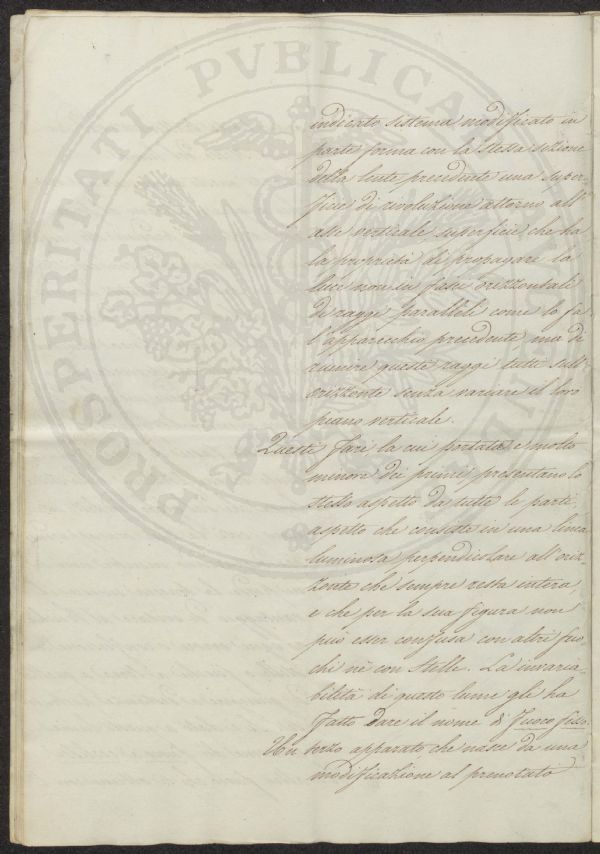 indicato sistema modificato in
parte forma con la stessa sezione
della lente precedente una super-
ficie di rivoluzione attorno all'
asse verticale superficie, che ha
la proprietà di propagare la
luce non in fisci orizzontali
di raggi paralleli come lo fa
l'apparecchio precedente ma di
riunire questi raggi tutti sull'
orizzonte senza variare il loro
piano verticale.
Questi Fari la cui portata è molto
minore dei primi presentano lo
stesso aspetto da tutte le parti
aspetto che consiste in una linea
luminosa perpendicolare all'oriz-
zonte che sempre resta intera,
e che per la sua figura non
può esser confusa con altri fuo-
chi nè con Stelle. La invaria-
bilità di questo lume gli ha
fatto dare il nome di Fuoco fisso.
Un terzo apparato che nasce da una
modificazione al prenotato
PROSPERITATI PVBLICAE